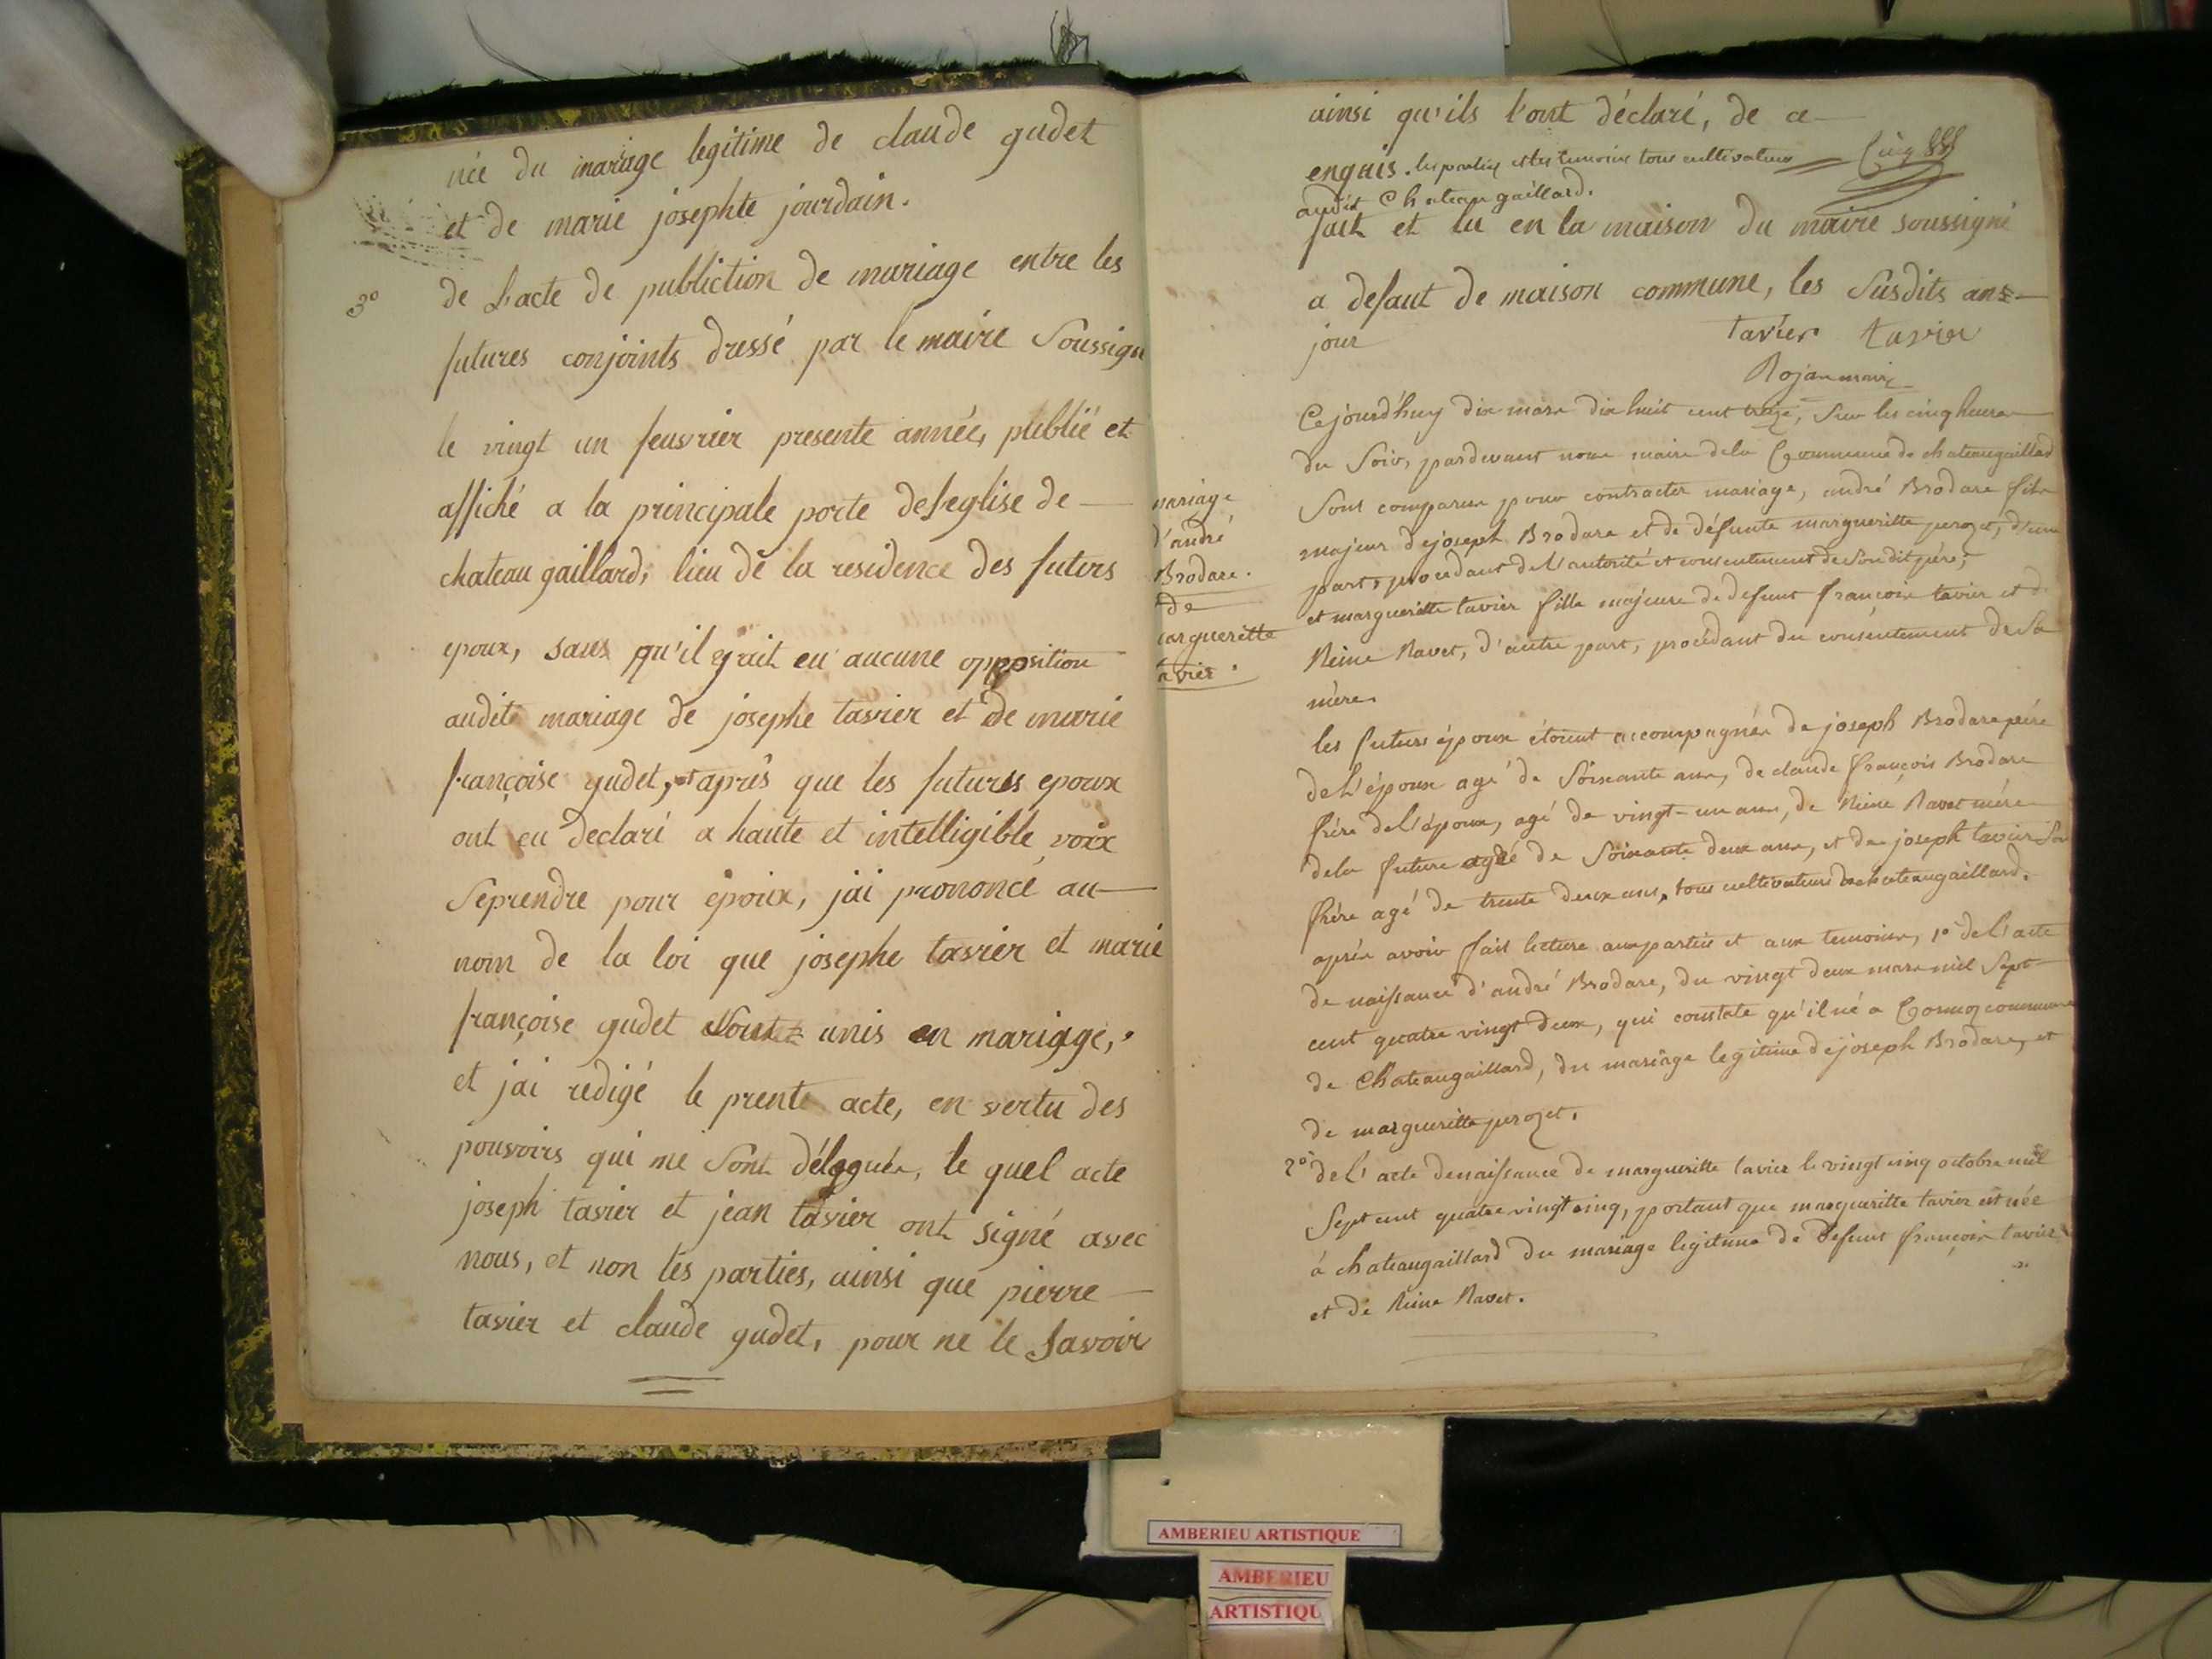 née du mariage legitime de claude gudet
et de marie josephte jourdain.
3° de L'acte de publiction de mariage entre les
futures conjoints dressé par le maire Soussign
le vingt un feuvrier presente année, plublié et
affiché a la principale porte de l'eglise de
chateau gaillard, lieu de la residence des futurs
epoux, sans qu'il y ait eu aucune opposition
audit mariage de josephe tavier et de marie
françoise gudet, et aprês que les futures epoux
ont eu declaré a haute et intelligible voix
Seprendre pour époux, jai prononcé au
nom de la loi que josephe tavier et marie
françoise gudet Sont unis en mariage,
et jai redigé le prent acte, en vertu des
pouvoirs qui me Sont délegués, le quel acte
joseph tavier et jean tavier ont signé avec
nous, et non les parties, ainsi que pierre
tavier et claude gudet, pour ne le Savoir
ainsi qu'ils l'ont déclaré, de ce
enquis. les parties et les temoins tous cultivateurs
audit Chateaugaillard.
fait et lu en la maison du maire soussigné
a defaut de maison commune, les Susdits ans
jour
tavier tavier
Rojan maire
mariage
d'andré
Brodare.
de
marguerītte
tavier.
Cejourdhuy dix mars dix huit cent treize, Sur les cinq heures
du Soir, pardevant nous maire dela Commune de chateaugaillard
Sont comparus pour contracter mariage, andré Brodare fils
majeur de joseph Brodare et de défunte margueritte perozet, d'une
part, procedant de l'autorité et consentement de Son dit père,
et margueritte tavier fille majeure de defunt françois tavier et d
Reine Ravet, d'autre part, procédant du consentement de Sa
mère.
les futurs époux étoient accompagnés de joseph Brodare père
de l'époux agé de Soixante ans, de claude françois Brodare
frére de l'époux, agé de vingt-un ans, de Reine Ravet mére
dela future agée de Soixante deux ans, et de joseph tavier Son
frére agé de trente deux ans, tous cultivateurs de chateaugaillard.
après avoir fait lecture aux parties et aux temoins, 1° de l'acte
de naissance d'andré Brodare, du vingt deux mars mil Sept
cent quatre vingt deux, qui constate qu'il né a Cormoz commune
de Chateaugaillard, du mariage legitime de joseph Brodare, et
de margueritte perozet.
2° de l'acte denaissance de margueritte tavier le vingt cinq octobre mil
Sept cent quatre vingt cinq, portant que margueritte tavier est née
à chateaugaillard du mariage legitime de defunt françois tavier
et de Reine Ravet.
AMBERIEU ARTISTIQUE
AMBERIEU
ARTISTIQU